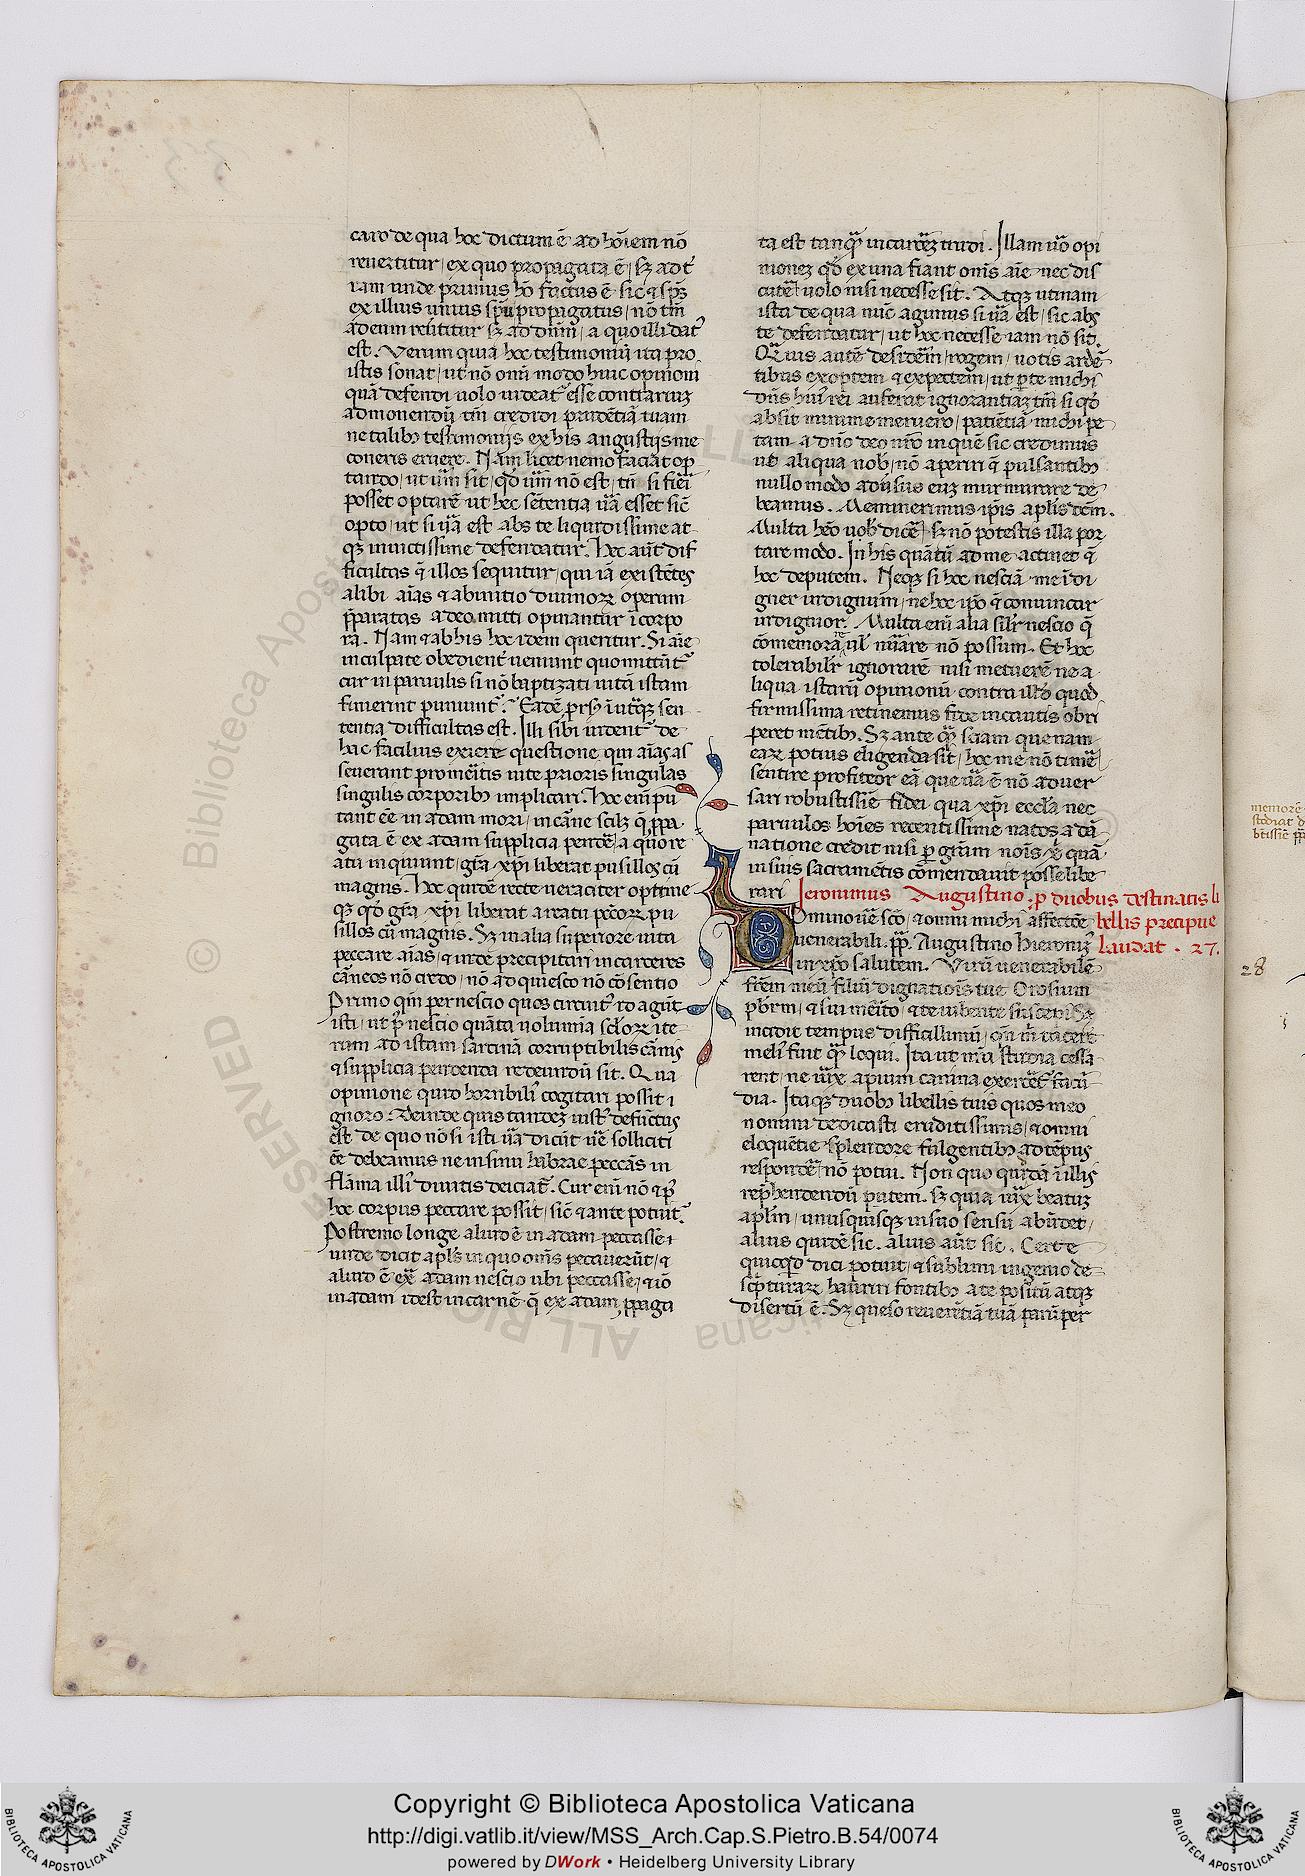 caro de qua hoc dictum ē ad hōiem nō
reuertitur / ex quo propagata ē / sz ad t'
ram unde primus hō factus ē sic & sp̄s
ex illius unius sp̄u propagatus / nō tn̄
ad eum reūtitur sz ad dn̄m / a quo illi dat'
est . Verum quia hoc testimoniū ita pro
istis sonat / ut nō om̄i modo huic opinioni
quā defendi uolo uideat' esse contrariuz
admonendū tm̄ credidi prudētiā tuam
ne talibus testimonijs ex his angustijs me
coneris eruere . Nam licet nemo faciat op
tando / ut uerū sit / qd̄ uerū nō est / tn̄ si fieri
posset optarē ut hec sētentia uera esset sic̄
opto / ut si uera est abs te liqudissime at
qz inuictissime defendatur . Hec aut̄ dif
ficultas & illos sequitur / qui iā existētes
alibi aīas & ab initio diuinorum operum
p̄paratas a deo mitti opinantur ī corpo
ra . Nam & ab his hoc idem queritur . Si aīe
inculpate obedient' ueniunt quo mittūt'
cur in paruulis si nō baptizati uitā istam
finierint puniunt' . Eadē prs' ī utraqz sen
tentia difficultas est . Illi sibi uident' de
hac facilius exire questione qui aīas as
seuerant pro meritis uite prioris singulas
singulis corporibus implicari . Hoc enī pu
tant eē in adam mori / in carne scilz q̄ ppa
gata ē ex adam supplicia pendē / a quo re
atu inquiunt / gr̄a xp̄i liberat pusillos cū
magnis . Hoc quidē recte ueraciter optime
qz qd̄ gr̄a xp̄i liberat a reatu pc̄cor pu
sillos cū magnis . Sz in alia superiore uita
peccare aīas / & inde precipitari in carceres
carneos nō credo / nō adquiesco nō cōsentio
Primo qm̄ per nescio quos circuit' id agūt
isti / ut p' nescio quāta uolumina seculor ite
rum ad istam sarcinā corruptibilis carnis
& supplicia pendenda redeundū sit . Qua
opinione quid horribili' cogitari possit i
gnoro . Deinde quis tandez iust' defūctus
est de quo nō si isti uera dicūt uere solliciti
eē debeamus ne in sinu habrae peccās in
flāma illi' diuitis deiciat' . Cur enī nō & p'
hoc corpus peccare possit / sic̄ & ante potuit .
Postremo longe aliud ē in adam peccasse i
unde dicit apl's in quo om̄s peccauerūt / &
aliud ē extra adam nescio ubi peccasse / & iō
in adam idest in carnē q̄ ex adam ppaga
ta est tanq̄ in carcerez trudi . Illam uero opi
nionez qd̄ ex una fiant om̄s aīe nec dis
cutē uolo nisi necesse sit . Atqz utinam
ista de qua nūc agimus si uera est / sic abs
te defendatur / ut hoc necesse iam nō sit .
Q̄uis autē desiderem / rogem / uotis ardē
tibus exoptem & expectem / ut p te michi
dn̄s hui' rei auferat ignorantiaz tm̄ si qd̄
absit minime meruero / patiētiā michi pe
tam a dn̄o deo nr̄o in quē sic credimus
ut aliqua nobis nō aperiri & pulsantibus
nullo modo aduersus euz murmurare de
beamus . Meminerimus ip̄is aplis dcm̄ .
Multa hēo uobis dicē / sz nō potestis illa por
tare modo . In his quātū ad me actinet &
hoc deputem . Neqz si hoc nesciā me īdi
gner indignum / ne hoc ip̄o & conuincar
indignior . Multa enī alia silr nescio q̄
cōmemorare ul' numerare nō possum . Et hoc
tolerabilr ignorarē nisi metuerē ne a
liqua istarū opinionū contra illud quod
firmissima retinemus fide incautis obri
peret mētibus . Sz ante q̄ sciam que nam
earz potius eligenda sit / hoc me nō timē
sentire profiteor eā que uera ē nō aduer
sari robustissie fidei qua xp̄i eccla nec
paruulos hoīes recentissime natos a dā
natione credit nisi p grām nois xp̄i quā
in suis sacramētis cōmendauit posse libe
rari Ieronimus Augustino . p duobus destinatis li
bellis precipue
laudat . 27 .
Domino uere scō / & omni michi affectōe
uenerabili . pp̄ . Augustino Hieronimus
in xp̄o salutem . Virū uenerabilē
frēm meū filiū dignatiois tue Orosium
pbrm / & sui merito / & te iubente suscepi . Sz
incidit tempus difficillimū / qn̄ m' tacere
meli' fuit q̄ loqui . Ita ut nr̄a studia cessa
rent / ne iuxta apium canina exerceret' facū
dia . Itaqz duobus libellis tuis quos meo
nomini dedicasti eruditissimis / & omni
eloquētie splendore fulgentibus ad tēpus
respondē / nō potui . Non quo quidā ī illis
rep̄hendendū putem . sz quia iuxta beatuz
apl'm / unusquisqz in suo sensu abūdet /
alius quidē sic . alius aūt sic . Certe
quicqd dici potuit / & sublimi ingenio de
scripturarz hauriri fontibus a te positū atqz
disertū ē . Sz queso reuerētiā tuā parūper
28
Copyright © Biblioteca Apostolica Vaticana
http://digi.vatlib.it/view/MSS_Arch.Cap.S.Pietro.B.54/0074
powered by DWork • Heidelberg University Library